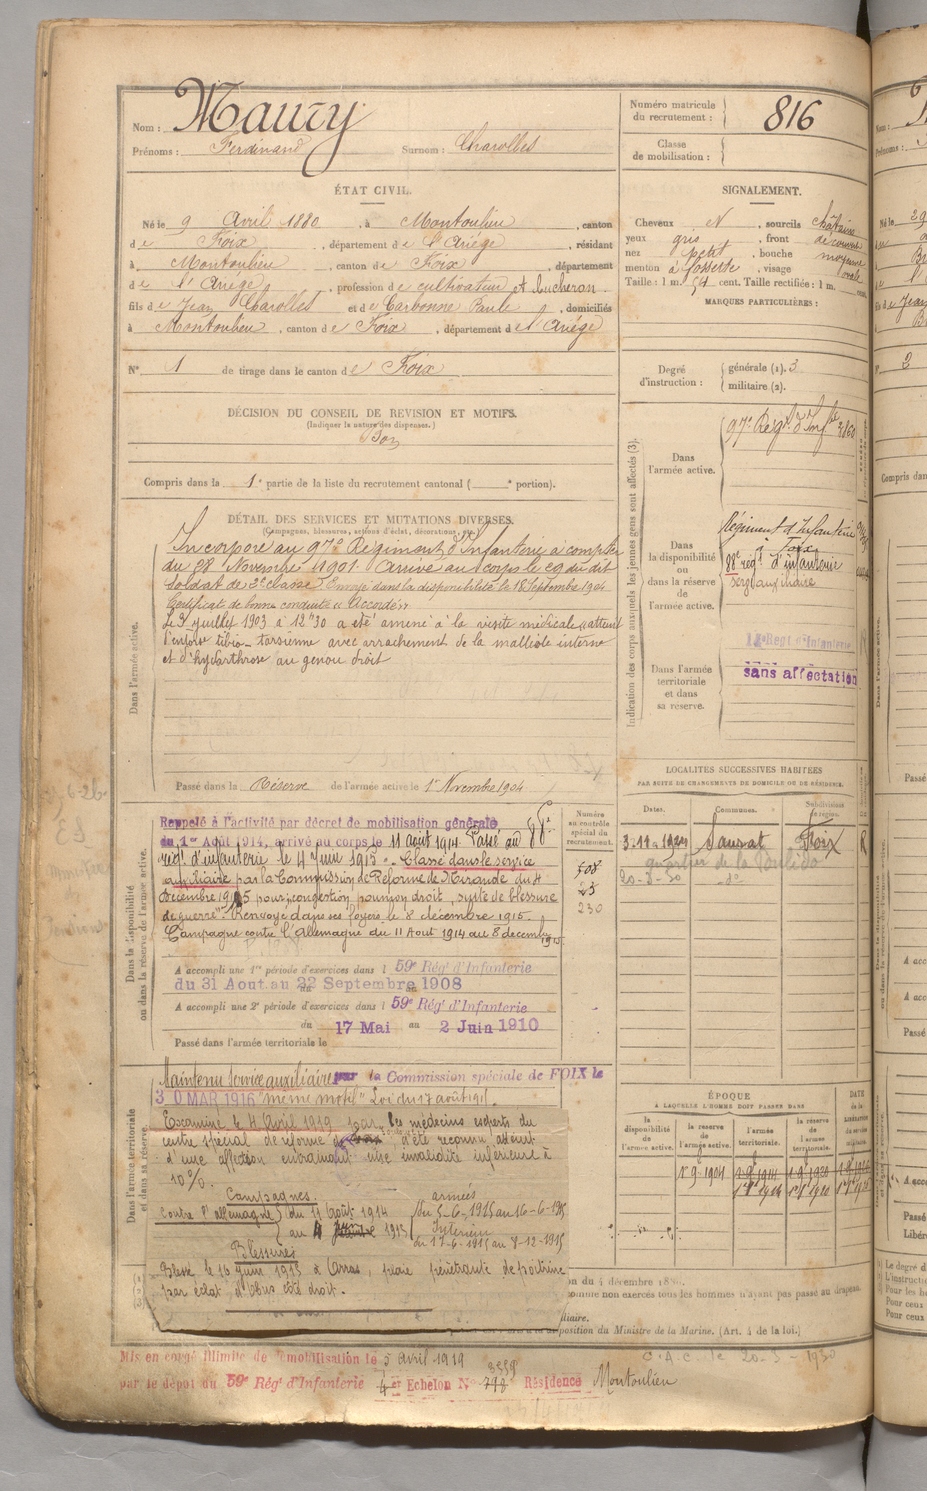 Nom : Maury
Prénoms : Ferdinand Surnom : Charolles
Numéro matricule du recrutement : 816
Classe de mobilisation :
ÉTAT CIVIL.
Né le 9 Avril 1880, à Montoulieu, canton
de Foix, département de l'Ariège, résidant
à Montoulieu, canton de Foix, département
de l'Ariège, profession de cultivateur et bucheron.
fils de Jean Charolles et de Carbonne Paule, domiciliés
à Montoulieu, canton de Foix, département de l'Ariège
N° 1 de tirage dans le canton de Foix
SIGNALEMENT.
Cheveux N, sourcils châtains
yeux gris, front
nez petit, bouche moyenne
menton à fossette, visage ovale
Taille : 1 m. 54 cent. Taille rectifiée : 1 m. cent.
MARQUES PARTICULIÈRES :
Degré d'instruction : générale (1). 3
militaire (2).
DÉCISION DU CONSEIL DE REVISION ET MOTIFS.
(Indiquer la nature des dispenses.)
Bon
Compris dans la 1e partie de la liste du recrutement cantonal ( e portion).
DÉTAIL DES SERVICES ET MUTATIONS DIVERSES.
(Campagnes, blessures, actions d'éclat, décorations, etc.)
Dans l'armée active.
Incorporé au 97e Régiment d'Infanterie à compter
du 28 Novembre 1901. Arrivé au corps le 29 du dit
Soldat de 2e classe. Envoyé dans la disponibilité le 18 Septembre 1904
Certificat de bonne conduite « Accordé »
Le 9 juillet 1903 à 12h30 a été amené à la visite médicale atteint
d'entorse tibio-tarsienne avec arrachement de la malléole interne
et d'hydarthrose au genou droit
Passé dans la Réserve de l'armée active le 1er Novembre 1904
Indication des corps auxquels les jeunes gens sont affectés (3).
Dans l'armée active.
97e Régt d'Infrie
Dans la disponibilité ou dans la réserve de l'armée active.
Régiment d'Infanterie
à Foix
88e régt d'infanterie
serv. auxiliaire
Dans l'armée territoriale et dans sa réserve.
Régt d'Infanterie
sans affectation
LOCALITÉS SUCCESSIVES HABITÉES
PAR SUITE DE CHANGEMENTS DE DOMICILE OU DE RÉSIDENCE.
Dates. Communes. Subdivisions de région.
3-11-1924 Saurat Foix R
quartier de la
20-3-30 do
Dans la disponibilité ou dans la réserve de l'armée active.
Numéro au contrôle spécial du recrutement.
230
Rappelé à l'activité par décret de mobilisation générale
du 1er Août 1914, arrivé au corps le 11 août 1914. Passé au 88e
régt d'infanterie le 4 Juin 1915. Classé dans le service
auxiliaire par la Commission de Réforme de Mirande du 4
Décembre 1915 pour congestion poumon droit, suite de blessure
de guerre. Renvoyé dans ses foyers le 8 décembre 1915.
Campagne contre l'Allemagne du 11 Aout 1914 au 8 décembre 1915
A accompli une 1re période d'exercices dans l 59e Régt d'Infanterie
du 31 Aout au 22 Septembre 1908
A accompli une 2e période d'exercices dans l 59e Régt d'Infanterie
du 17 Mai au 2 Juin 1910
Passé dans l'armée territoriale le
Dans l'armée territoriale et dans sa réserve.
Maintenu service auxiliaire par la Commission spéciale de FOIX le
30 MAR 1916 "même motif" Loi du 17 août 1915.
Examiné le 4 Avril 1919 par les médecins experts du
centre spécial de réforme a été reconnu atteint
d'une affection entrainant une invalidité inférieure à
10%.
Campagnes.
Contre l'allemagne du 11 août 1914
au 4 1915
armées
du 5-6-1915 au 16-6-1915
Intérieur
du 17-6-1915 au 8-12-1915
Blessures
Blessé le 16 Juin 1915 à Arras, plaie pénétrante de poitrine
par éclat d'obus côté droit.
ÉPOQUE
À LAQUELLE L'HOMME DOIT PASSER DANS
la disponibilité de l'armée active.
la réserve de l'armée active.
l'armée territoriale.
la réserve de l'armée territoriale.
DATE de la LIBÉRATION du service militaire.
1er 9bre 1904
du 4 décembre 18
non exercés tous les hommes n'ayant pas passé au drapeau.
position du Ministre de la Marine. (Art. 4 de la loi.)
Mis en congé illimité de démobilisation le 5 avril 1919
par le dépôt du 59e Régt d'Infanterie 4er Echelon N° 798 3559 Résidence Montoulieu
C.A.C. le 20-3-1930